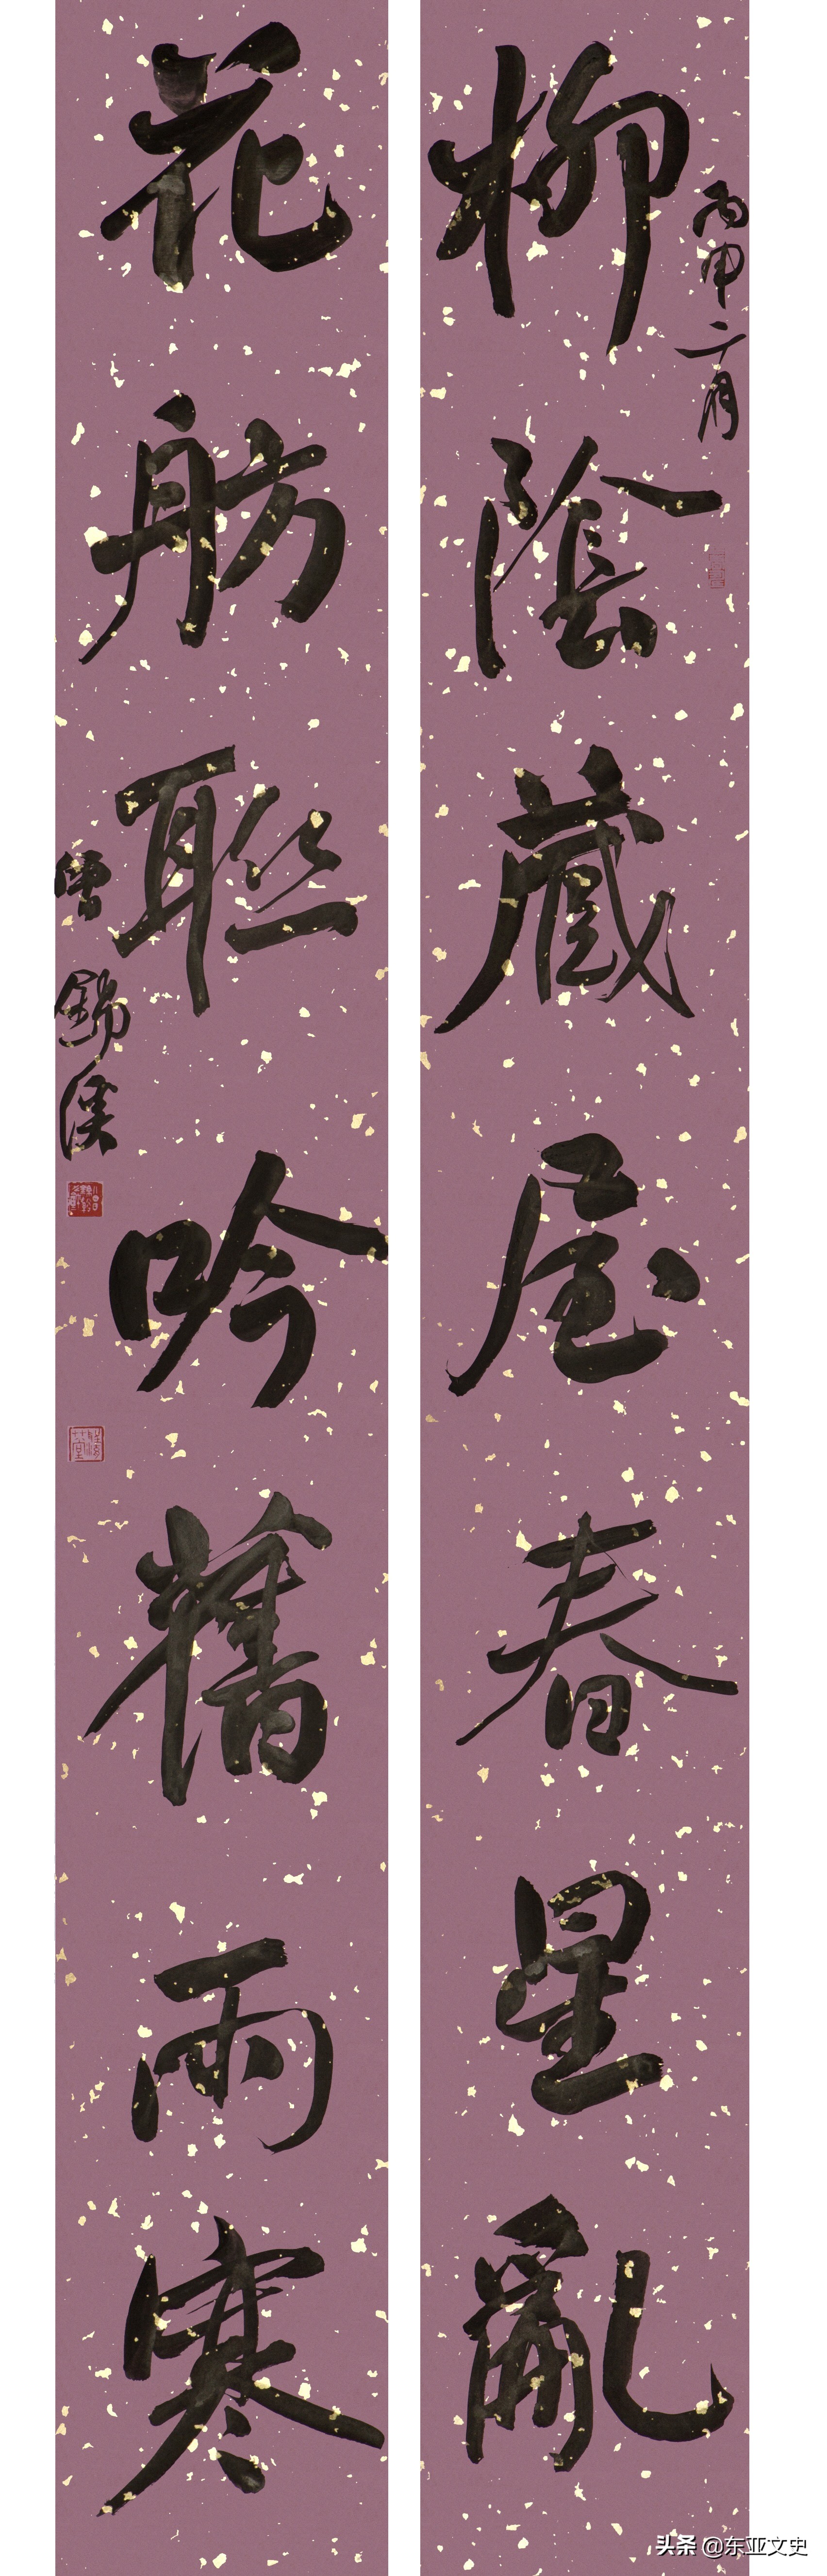 丙申二月
柳陰藏屋春星亂
花舫聯吟舊雨寒
曾錦溪
头条 @东亚文史